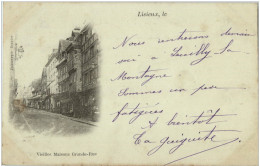 Lisieux, le
Nous rentrerons demain
soir à Romilly la
Montagne
Sommes un peu
fatiguées
A bientôt
Ta
Vieilles Maisons Grande-Rue